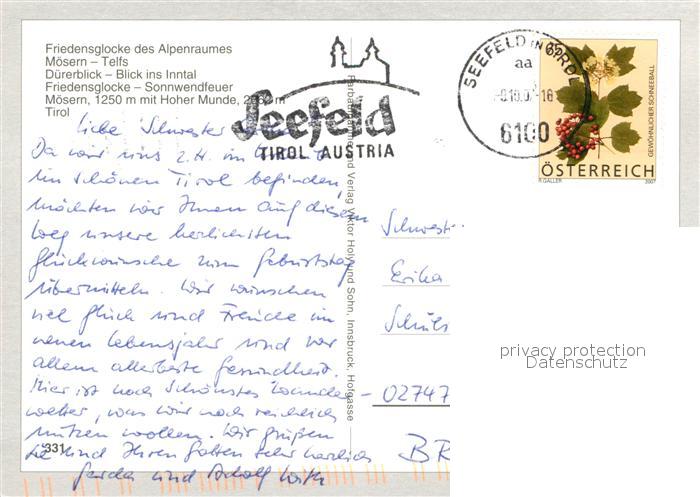 Friedensglocke des Alpenraumes
Mösern – Telfs
Dürerblick – Blick ins Inntal
Friedensglocke – Sonnwendfeuer
Mösern, 1250 m mit Hoher Munde, m
Tirol
Seefeld
TIROL AUSTRIA
SEEFELD IN TIROL
aa
6100
GEWÖHNLICHER SCHNEEBALL
ÖSTERREICH
R.GALLER 2007
Liebe Schwester
Da wir uns z.H. im
im schönen Tirol befinden,
möchten wir Ihnen auf diesem
Weg unsere herzlichsten
Glückwünsche zum Geburtstag
übermitteln. Wir wünschen
viel Glück und Freude im
neuen Lebensjahr und vor
allem allerbeste Gesundheit.
Hier ist noch schönstes Wander-
wetter, was wir noch reichlich
nützen wollen. Wir grüßen
Sie und Ihren Gatten sehr herzlich
Gerda und Adolf
331
Verlag Viktor Hohlund Sohn, Innsbruck, Hofgasse
Schwest
Erika
Schuls
02747
BR
privacy protection
Datenschutz